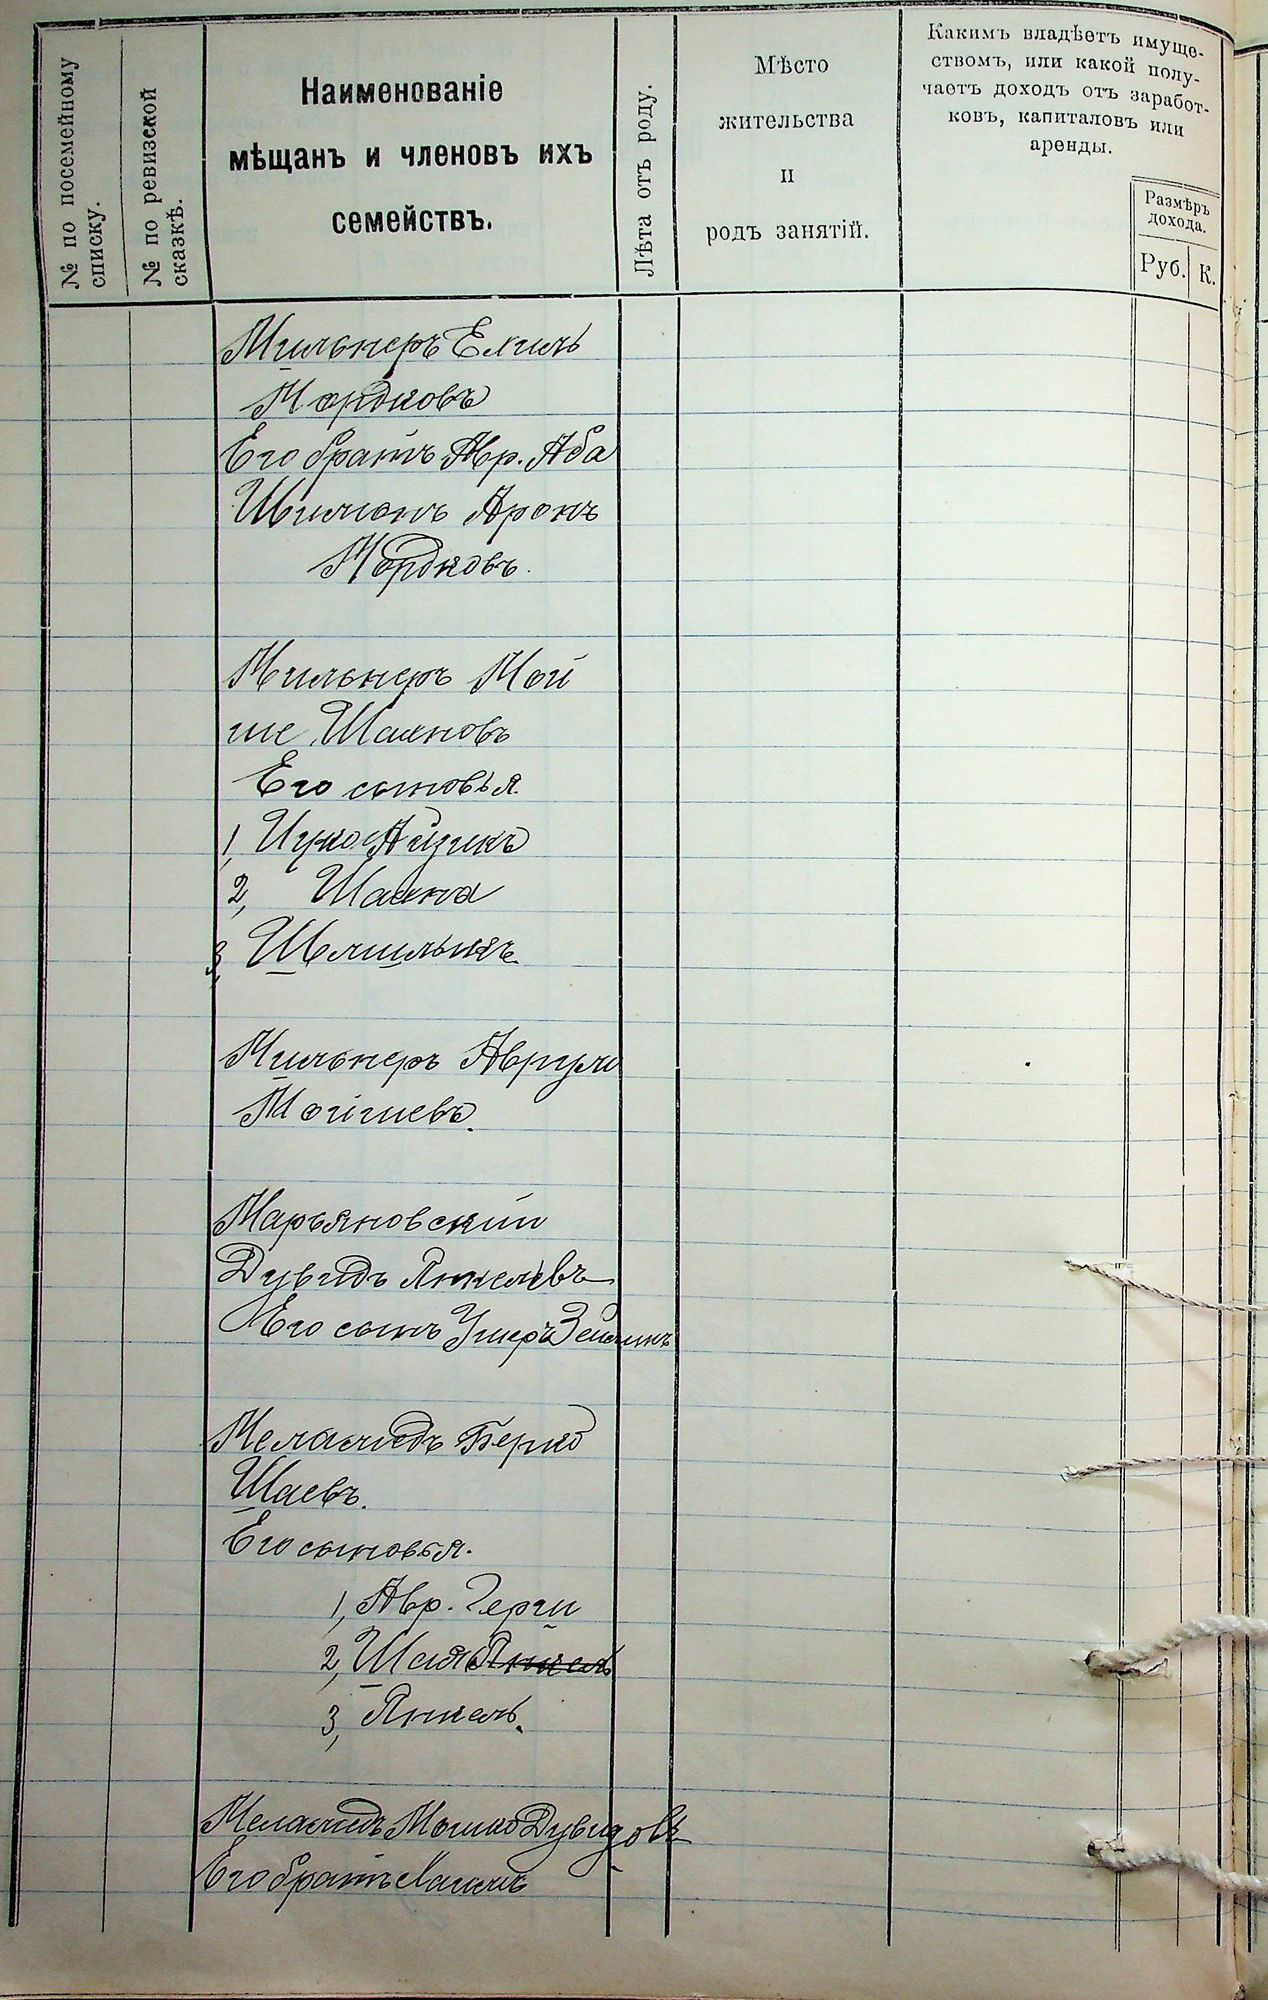 № по посемейному
списку.
№ по ревизской
сказкѣ.
Наименованіе
мѣщанъ и членовъ ихъ
семействъ.
Лѣта отъ роду.
Мѣсто
жительства
и
родъ занятій.
Какимъ владѣетъ имуще-
ствомъ, или какой полу-
чаетъ доходъ отъ заработ-
ковъ, капиталовъ или
аренды.
Размѣръ
дохода.
Руб. К.
Мильнеръ Ехиль
Мордковъ
Его братъ Авр. Аба
Шимонъ Аронъ
Мордковъ.
Мильнеръ Мой
ше Шаяновъ
Его сыновья.
1, Ицко Айзикъ
2, Шаяна
3, Шмилькъ
Мильнеръ Аврумъ
Мойшевъ.
Марьяновскій
Дувидъ Янкелевъ
Его сынъ Ушеръ Зейликъ
Меламедъ Берко
Шаевъ.
Его сыновья.
1, Авр. Герш
2, Шая Янкель
3, Янкель.
Меламедъ Мошко Дувидовъ
Его братъ Хаимъ